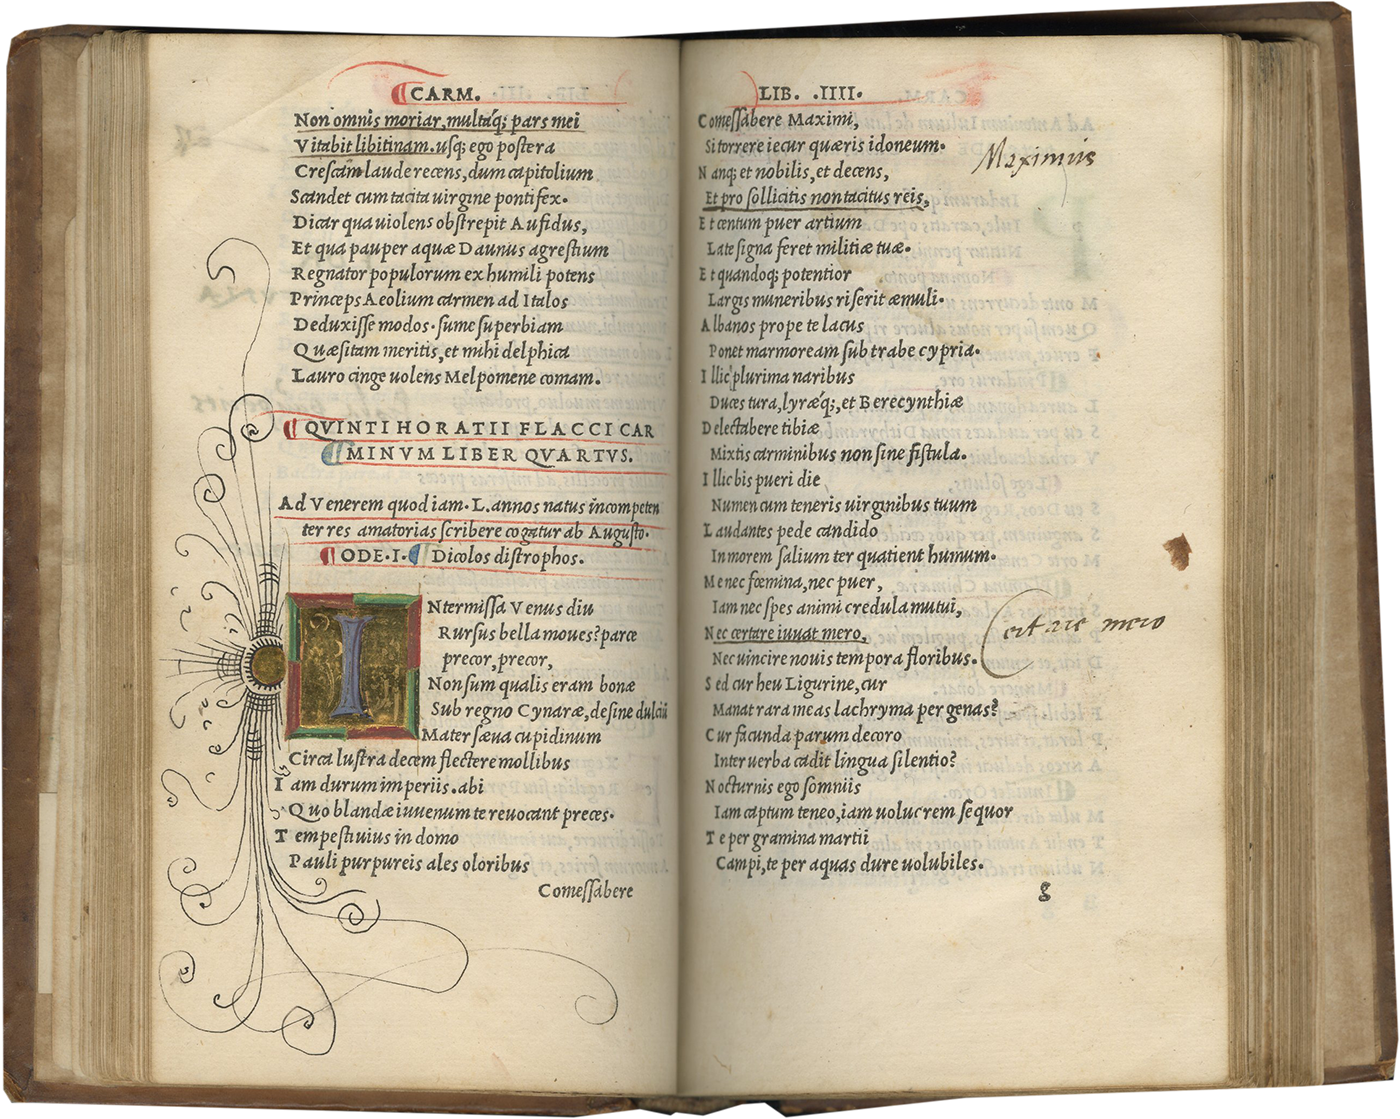 CARM.
Non omnis moriar, multaq; pars mei
Vitabit libitinam. usq; ego postera
Crescam laude recens, dum capitolium
Scandet cum tacita uirgine pontifex.
Dicar qua uiolens obstrepit Aufidus,
Et qua pauper aquæ Daunus agrestium
Regnator populorum ex humili potens
Princeps Aeolium carmen ad Italos
Deduxisse modos. sume superbiam
Quæsitam meritis, et mihi delphica
Lauro cinge uolens Melpomene comam.
QVINTI HORATII FLACCI CAR
MINVM LIBER QVARTVS.
Ad Venerem quod iam .L. annos natus incompeten
ter res amatorias scribere cogatur ab Augusto.
ODE .I. Dicolos distrophos.
INtermissa Venus diu
Rursus bella moues? parce
precor, precor,
Non sum qualis eram bonæ
Sub regno Cynaræ, desine dulciũ
Mater sæua cupidinum
Circa lustra decem flectere mollibus
Iam durum imperiis. abi
Quo blandæ iuuenum te reuocant preces.
Tempestiuius in domo
Pauli purpureis ales oloribus
Comessabere
LIB. .IIII.
Comessabere Maximi,
Si torrere iecur quæris idoneum.
Nanq; et nobilis, et decens,
Et pro sollicitis non tacitus reis,
Et centum puer artium
Late signa feret militiæ tuæ.
Et quandoq; potentior
Largis muneribus riserit æmuli.
Albanos prope te lacus
Ponet marmoream sub trabe cypria.
Illic plurima naribus
Duces tura, lyræq;, et Berecynthiæ
Delectabere tibiæ
Mixtis carminibus non sine fistula.
Illic bis pueri die
Numen cum teneris uirginibus tuum
Laudantes pede candido
In morem salium ter quatient humum.
Me nec fœmina, nec puer,
Iam nec spes animi credula mutui,
Nec certare iuuat mero,
Nec uincire nouis tempora floribus.
Sed cur heu Ligurine, cur
Manat rara meas lachryma per genas?
Cur facunda parum decoro
Inter uerba cadit lingua silentio?
Nocturnis ego somniis
Iam captum teneo, iam uolucrem sequor
Te per gramina martii
Campi, te per aquas dure uolubiles.
g
Maximus
Certare mero